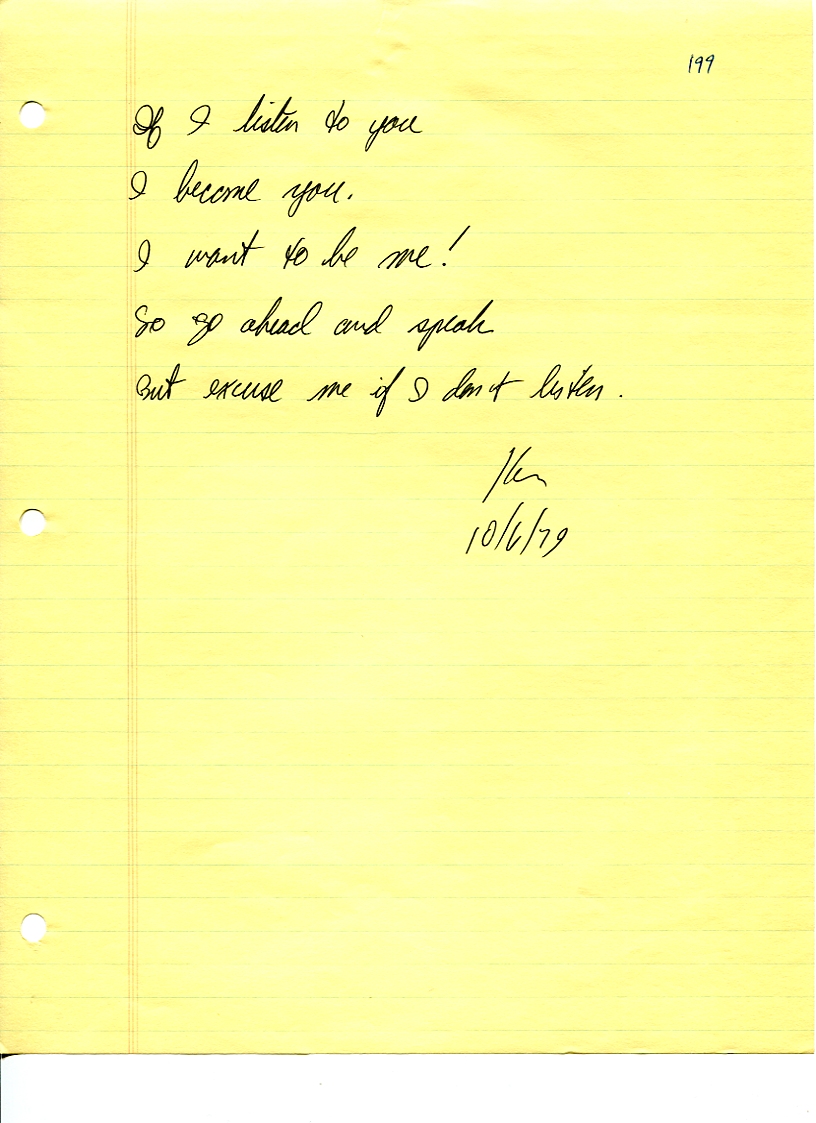 199
If I listen to you
I become you.
I want to be me!
So go ahead and speak
But excuse me if I don't listen.
Ken
10/6/79